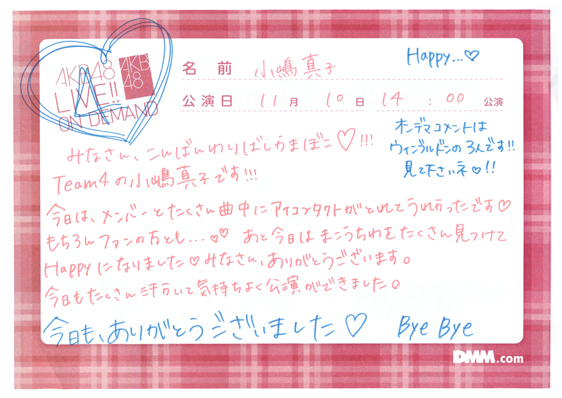 AKB48
LIVE!!
ON DEMAND
AKB
48
名前 小嶋真子
Happy...♡
公演日 11月10日 14:00 公演
オンデマコメントは
ウィンブルドンの3人です!!
見て下さいネ♡!!
みなさん、こんばんわりばしかまぼこ♡!!!
Team4の小嶋真子です!!!
今日は、メンバーとたくさん曲中にアイコンタクトがとれてうれしかったです♡
もちろんファンの方とも...♡♡ あと今日はまこうちわをたくさん見つけて
Happyになりました♡みなさん、ありがとうございます。
今日もたくさん汗かいて気持ちよく公演ができました。
今日も、ありがとうございました♡ Bye Bye
DMM.com